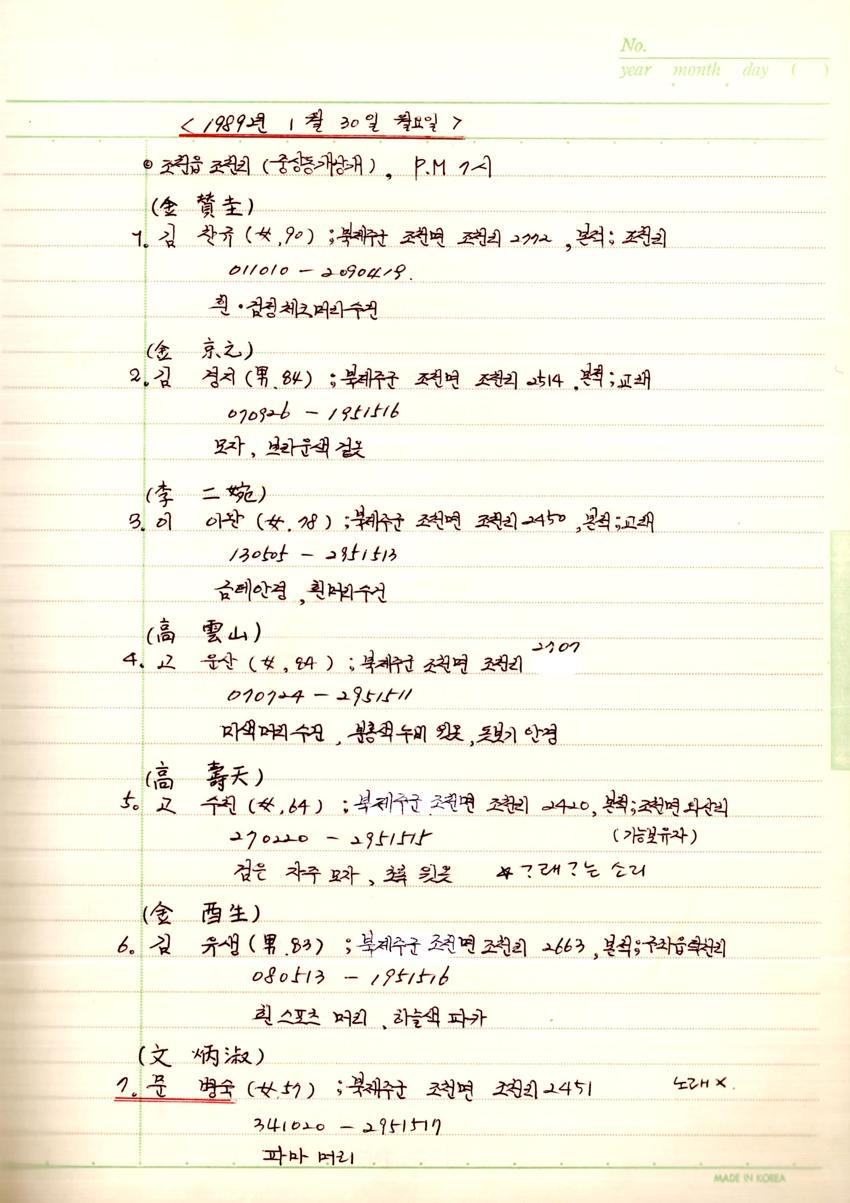 No.
year month day ( )
< 1989년 1월 30일 월요일 >
◎ 조천읍 조천리 (중상동개상개), P.M 7시
(金 賛圭)
1. 김 찬규 (女, 90) ; 북제주군 조천면 조천리 2772, 본적; 조천리
011010 - 2090419.
흰·검정체크머리수건
(金 京之)
2. 김 경지 (男. 84) ; 북제주군 조천면 조천리 2514, 본적; 교래
070926 - 1951516
모자, 브라운색 겉옷
(李 二婉)
3. 이 이완 (女. 78) ; 북제주군 조천면 조천리 2450, 본적; 교래
130505 - 2951513
금테안경, 흰머리수건
(高 雲山)
4. 고 운산 (女, 84) ; 북제주군 조천면 조천리 2707
070724 - 2951511
미색머리수건, 분홍색 누비 윗옷, 돋보기 안경
(高 壽天)
5. 고 수천 (女, 64) ; 북제주군 조천면 조천리 2420, 본적; 조천면 와산리
270220 - 2951515 (기능보유자)
검은 자주 모자, 초록 윗옷 ☆ ?래?는 소리
(金 酉生)
6. 김 유생 (男. 83) ; 북제주군 조천면 조천리 2663, 본적; 구좌읍
080513 - 1951516
흰 스포츠 머리, 하늘색 파카
(文 炳淑)
7. 문 병숙 (女. 57) ; 북제주군 조천면 조천리 2451 노래 ×.
341020 - 2951517
파마 머리
MADE IN KOREA